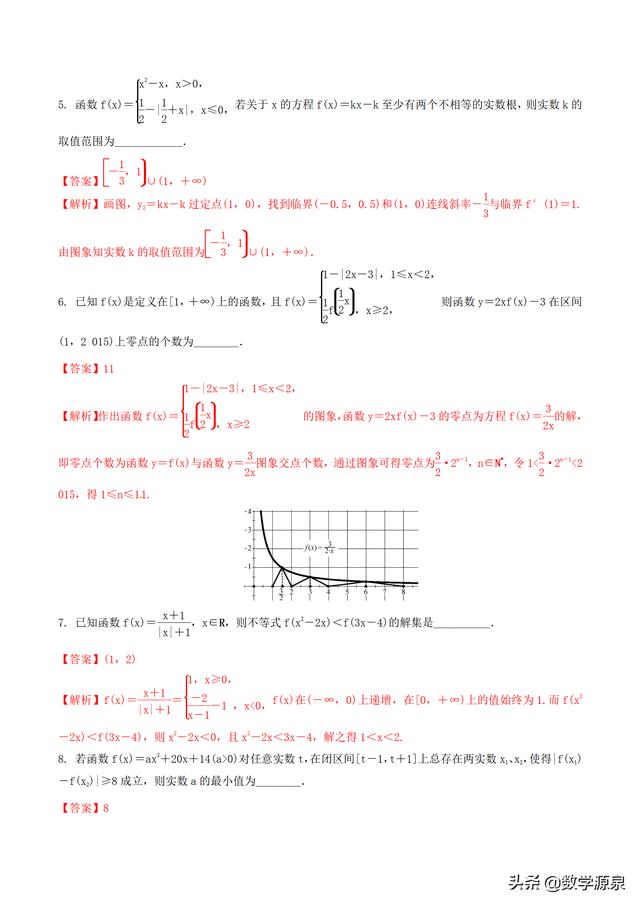 5. 函数 f(x)={x²－x，x＞0，
1/2－|1/2＋x|，x≤0，若关于 x 的方程 f(x)＝kx－k 至少有两个不相等的实数根，则实数 k 的
取值范围为____________．
【答案】[－1/3，1)∪(1，＋∞)
【解析】画图，y₂＝kx－k 过定点(1，0)，找到临界(－0.5，0.5)和(1，0)连线斜率－1/3与临界 f′(1)＝1.
由图象知实数 k 的取值范围为[－1/3，1)∪(1，＋∞)．
6. 已知 f(x)是定义在[1，＋∞)上的函数，且 f(x)＝{1－|2x－3|，1≤x＜2，
1/2f(1/2x)，x≥2， 则函数 y＝2xf(x)－3 在区间
(1，2 015)上零点的个数为________．
【答案】11
【解析】作出函数 f(x)＝{1－|2x－3|，1≤x＜2，
1/2f(1/2x)，x≥2 的图象，函数 y＝2xf(x)－3 的零点为方程 f(x)＝3/2x的解，
即零点个数为函数 y＝f(x)与函数 y＝3/2x图象交点个数，通过图象可得零点为3/2·2ⁿ⁻¹，n∈N*，令 1<3/2·2ⁿ⁻¹<2
015，得 1≤n≤11.
4
3
2
1
f(x)=3/2·x
3/2 2 3 4 5 6 7 8
7. 已知函数 f(x)＝x＋1/|x|＋1，x∈R，则不等式 f(x²－2x)＜f(3x－4)的解集是__________．
【答案】(1，2)
【解析】f(x)＝x＋1/|x|＋1＝{1，x≥0，
－2/x－1－1 ，x<0，f(x)在(－∞，0)上递增，在[0，＋∞)上的值始终为 1.而 f(x²
－2x)＜f(3x－4)，则 x²－2x＜0，且 x²－2x＜3x－4，解之得 1＜x＜2.
8. 若函数 f(x)＝ax²＋20x＋14(a>0)对任意实数 t，在闭区间[t－1，t＋1]上总存在两实数 x₁、x₂，使得|f(x₁)
－f(x₂)|≥8 成立，则实数 a 的最小值为________．
【答案】8
头条 @数学源泉